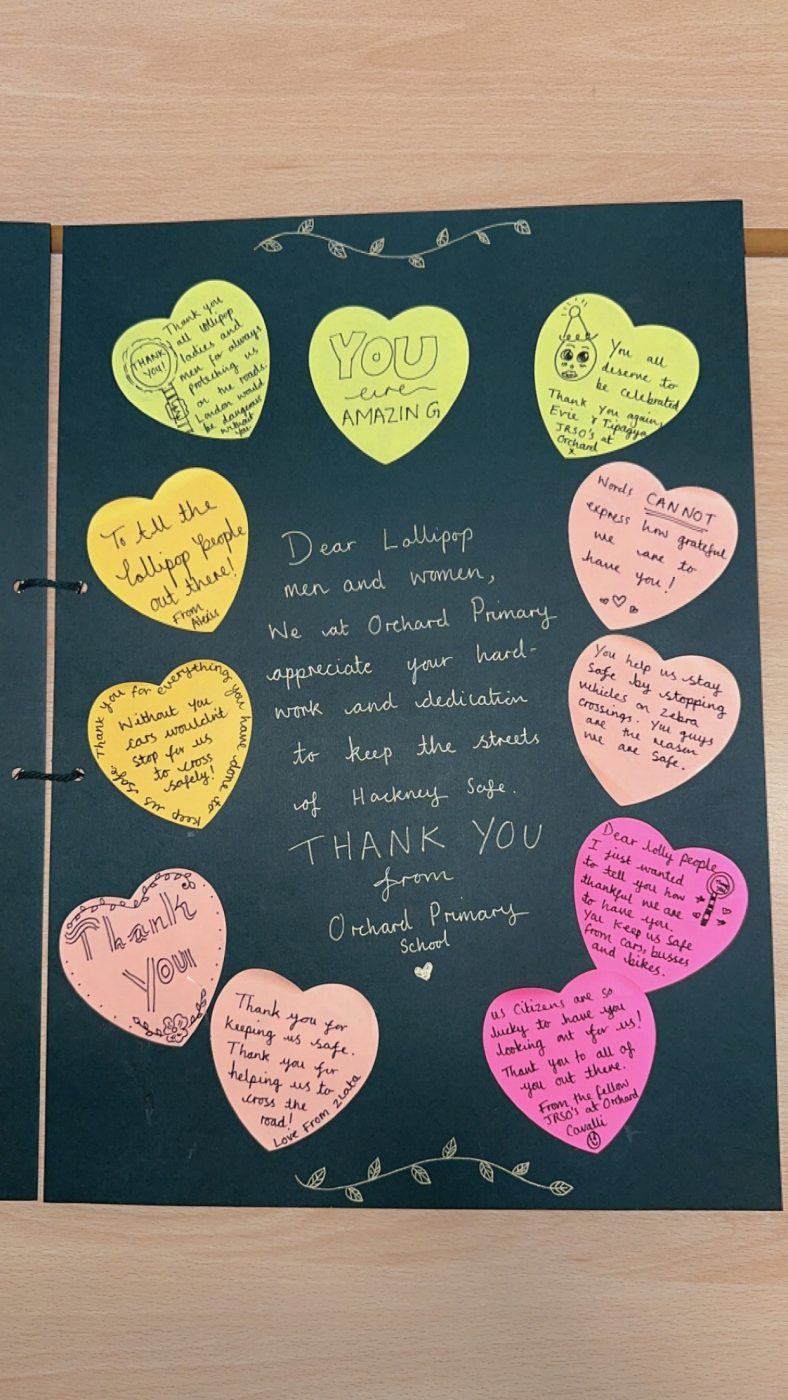 Thank you
all lollipop
ladies and
men for always
protecting us
on the roads.
London would
be dangerous
without
you
THANK
YOU!
YOU
are
AMAZING
You all
deserve to
be celebrated
Thank you again,
Evie & Tipagya
JRSO's at
Orchard
x
To all the
lollipop people
out there!
From,
Alexis
Words CANNOT
express how grateful
we are to
have you!
Dear Lollipop
men and women,
We at Orchard Primary
appreciate your hard-
work and dedication
to keep the streets
of Hackney Safe.
THANK YOU
from
Orchard Primary
School
Thank you for everything you have done to keep us safe.
Without you
cars wouldn't
stop for us
to cross
safely!
You help us stay
safe by stopping
vhicles on zebra
crossings. You guys
are the reason
we are safe.
Thank
You
Dear lolly people
I just wanted
to tell you how
thankful we are
to have you.
You keep us safe
from cars, busses
and bikes.
Thank you for
keeping us safe.
Thank you for
helping us to
cross the
road!
Love From Zlata
us citizens are so
lucky to have you
looking out for us!
Thank you to all of
you out there.
From the fellow
JRSO's at Orchard
Cavalli